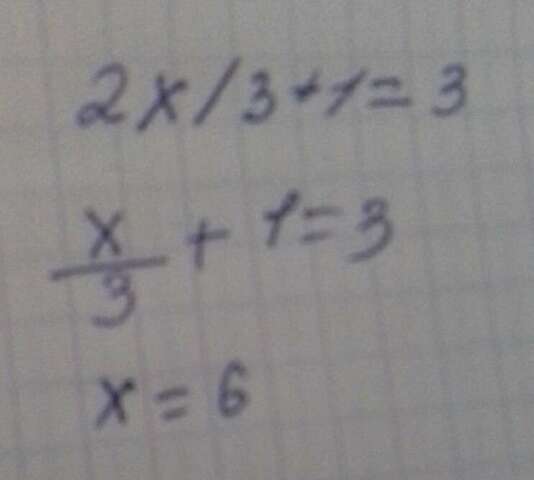 2x/3+1=3
x/3 + 1=3
x = 6